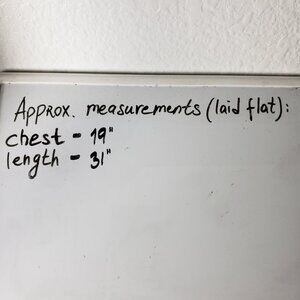 Approx. measurements (laid flat):
chest - 19"
length - 31"